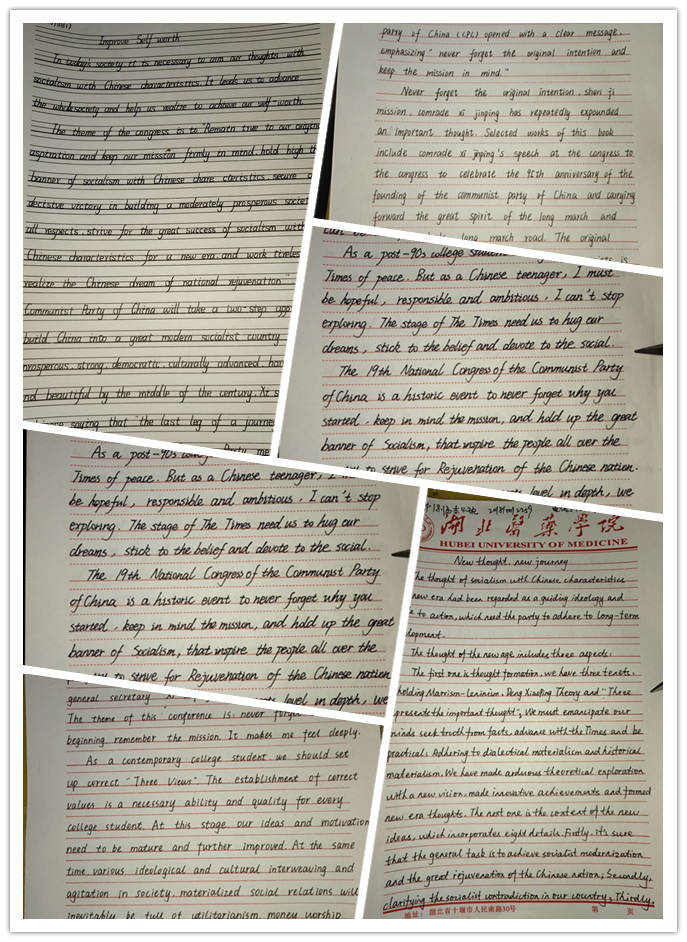 Improve Self worth
In today's society it is necessary to arm our thoughts with
socialism with Chinese characteristics. It leads us to advance
the whole society and help us realize to achieve our self worth
The theme of the congress is to "Remain true to our original
aspiration and keep our mission firmly in mind, hold high th
banner of socialism with Chinese chara cteristics, secure a
decisive victory in building a moderately prosperous societ
all respects, strive for the great success of socialism with
Chinese characteristics for a new era, and work tireles
realize the Chinese dream of national rejuvenation"
Communist Party of China will take a two-step appo
build China into a great modern socialist country
prosperous, strong, democratic, culturally advanced, har
nd beautiful by the middle of the century. Xi s
saying that "the last leg of a journe
party of China (CPC) opened with a clear message,
emphasizing "never forget the original intention and
keep the mission in mind."
Never forget the original intention, shan ji
mission, comrade xi jinping has repeatedly expounded
an important thought. Selected works of this book
include comrade xi jinping's speech at the congress to
the congress to celebrate the 95th anniversary of the
founding of the communist party of China and carrying
forward the great spirit of the long march and
long march road. The original
As a post-90s college studen
Times of peace. But as a Chinese teenager, I must
be hopeful, responsible and ambitious, I can't stop
exploring. The stage of The Times need us to hug our
dreams, stick to the belief and devote to the social.
The 19th National Congress of the Communist Party
of China is a historic event to never forget why you
started, keep in mind the mission, and hold up the great
banner of Socialism, that inspire the people all over the
to strive for Rejuvenation of the Chinese nation.
level in depth, we
As a post-90s
Times of peace. But as a Chinese teenager, I
be hopeful, responsible and ambitious, I can't stop
exploring. The stage of The Times need us to hug our
dreams, stick to the belief and devote to the social.
The 19th National Congress of the Communist Party
of China is a historic event to never forget why you
started, keep in mind the mission, and hold up the great
banner of Socialism, that inspire the people all over the
to strive for Rejuvenation of the Chinese nation
level in depth, we
general secretary
The theme of this conference is: never forge
beginning, remember the mission. It makes me feel deeply.
As a contemporary college student we should set
up correct "Three Views". The establishment of correct
values is a necessary ability and quality for every
college student. At this stage, our ideas and motivation
need to be mature and further improved. At the same
time, various ideological and cultural interweaving and
agitation in society, materialized social relations will
inevitably be full of utilitarianism, money worship
湖北醫藥學院
HUBEI UNIVERSITY OF MEDICINE
New thought, new journey
The thought of socialism with Chinese characteristics
new era had been regarded as a guiding ideology and
to action, which need the party to adhere to long-term
lopment.
The thought of the new age includes three aspects:
The first one is thought formation, we have three tenets,
holding Marxism-Leninism, Deng Xiaoping Theory and "Three
presents the important thought"; We must emancipate our
minds seek truth from facts, advance with the Times and be
practical; Adhering to dialectical materialism and historical
materialism. We have made arduous theoretical exploration
with a new vision, made innovative achievements and formed
new era thoughts. The next one is the content of the new
ideas, which incorporates eight details. Firstly, it's sure
that the general task is to achieve socialist modernization
and the great rejuvenation of the Chinese nation; Secondly,
clarifying the socialist contradiction in our country; Thirdly,
地址：湖北省十堰市人民南路30号 第 页